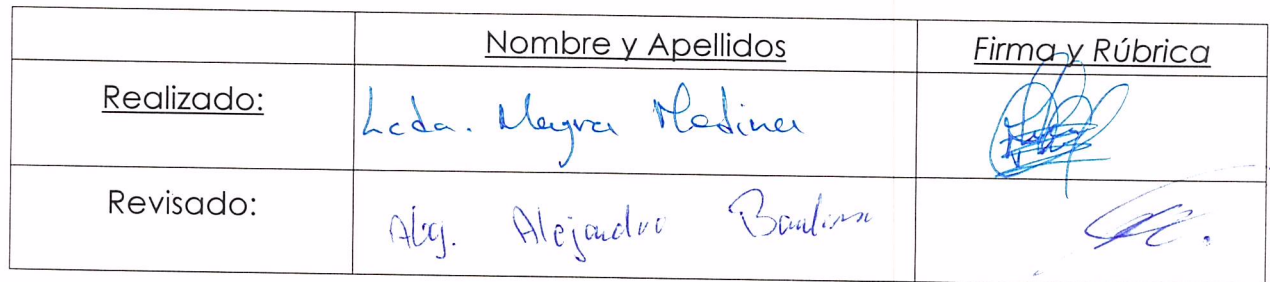 Nombre y Apellidos Firma y Rúbrica
Realizado: Lcda. Mayra Medina
Revisado: Abg. Alejandro